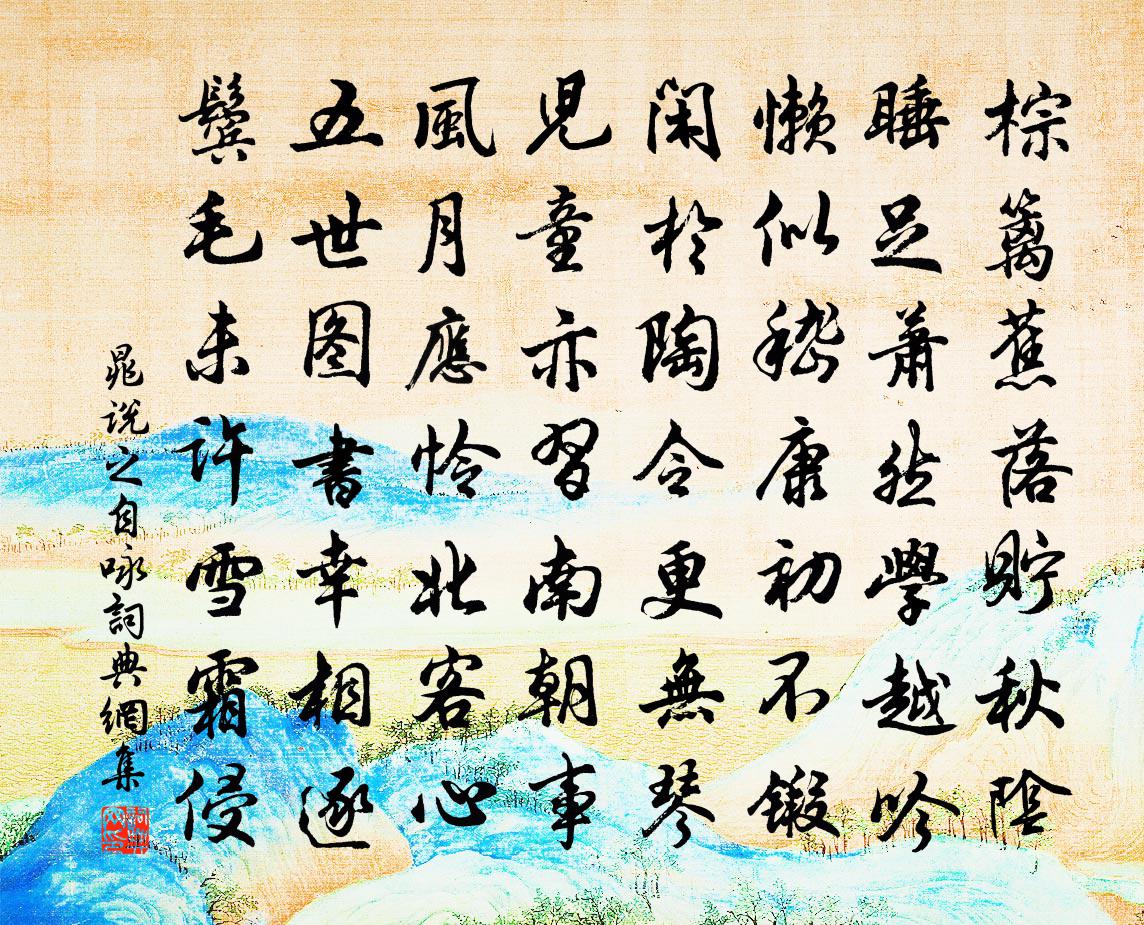 棕篱蕉落貯秋陰
睡足萧然學越吟
懒似嵇康初不鍛
闲於陶令更無琴
児童亦習南朝事
風月應怜北客心
五世图書幸相逐
鬓毛未許雪霜侵
晁说之自咏詞典網集